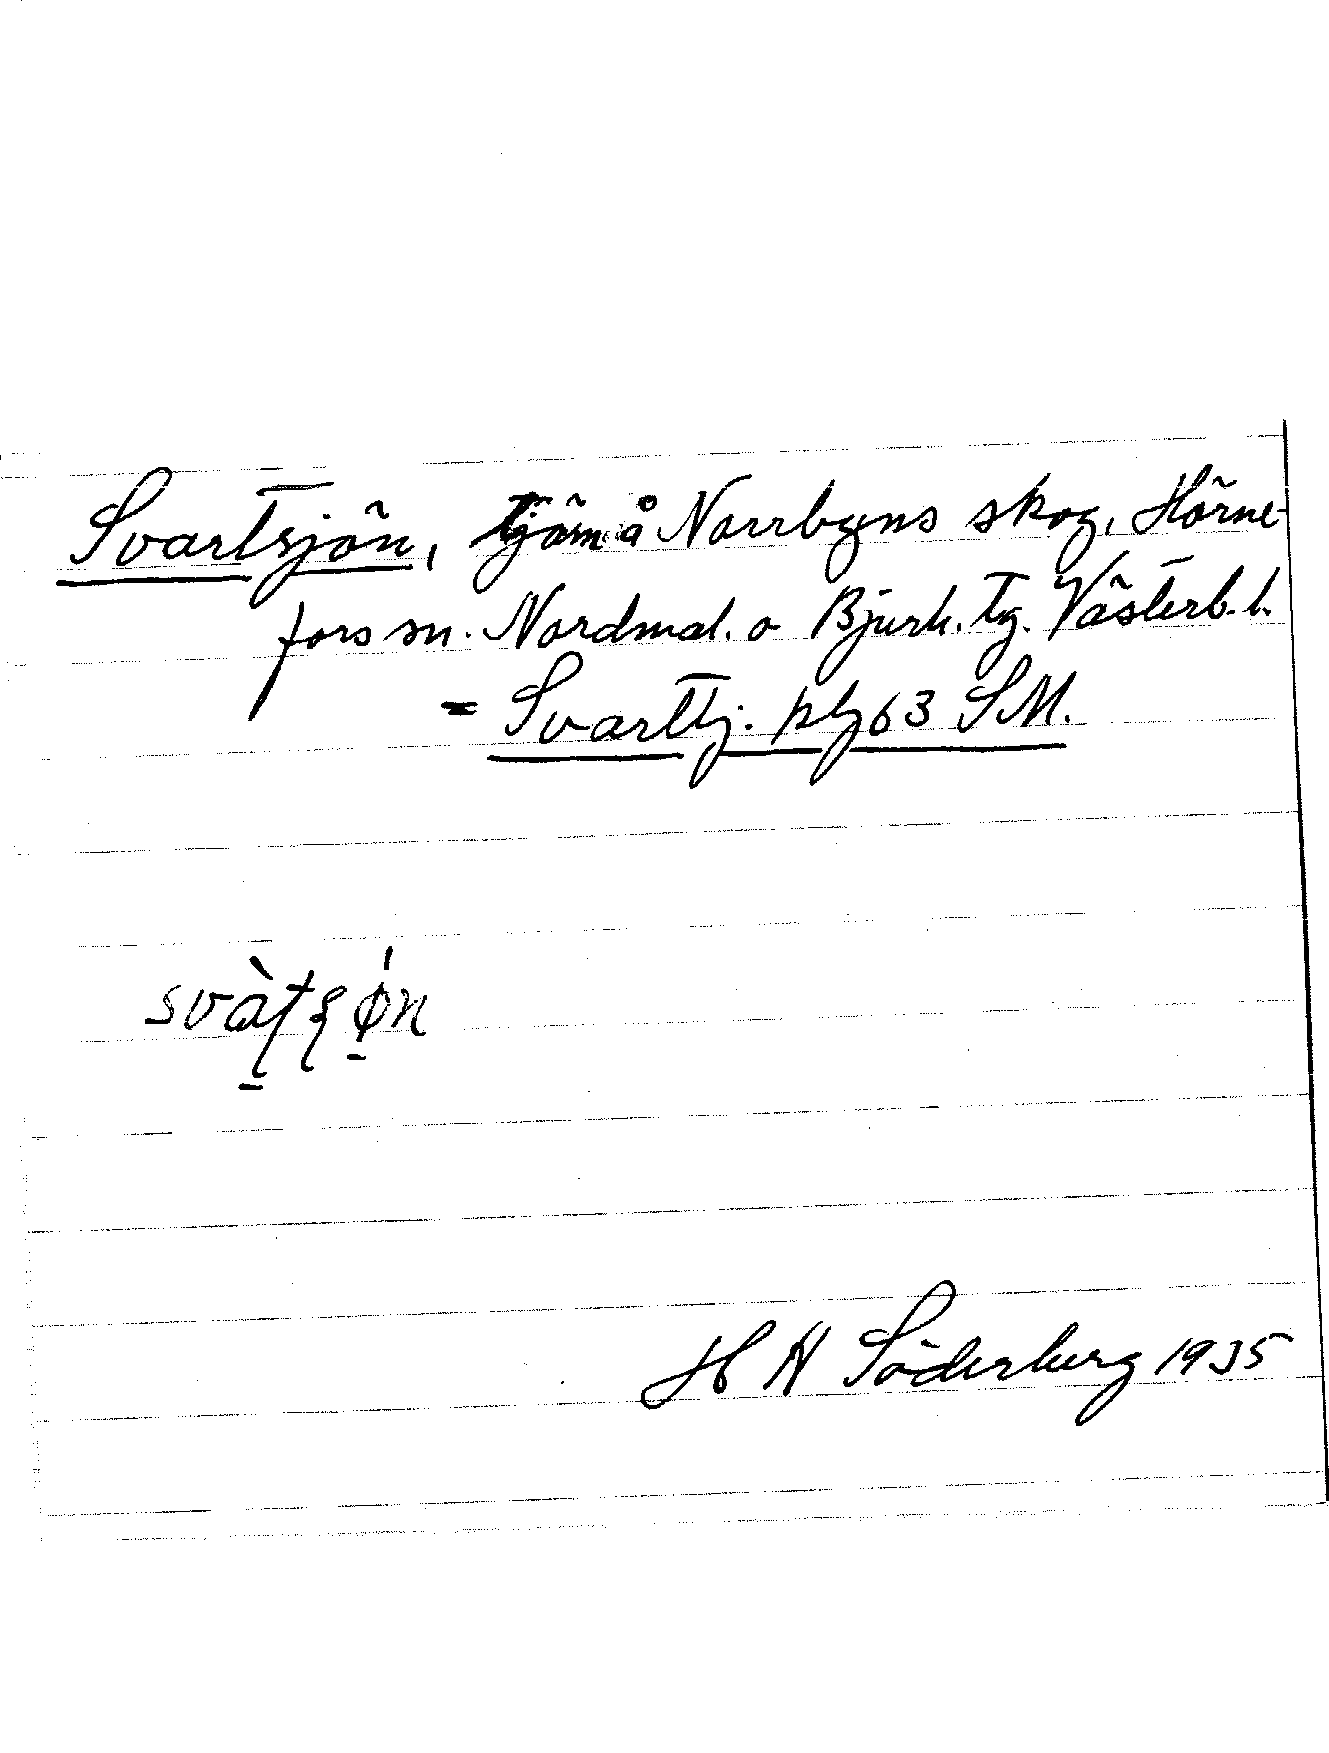 Svartsjön, tjärn å Norrbyns skog, Hörne-
fors sn. Nordmal. o Bjurh. tg. Västerb. l.
= Svarttj. plg 63 SM.
H A Söderberg 1935